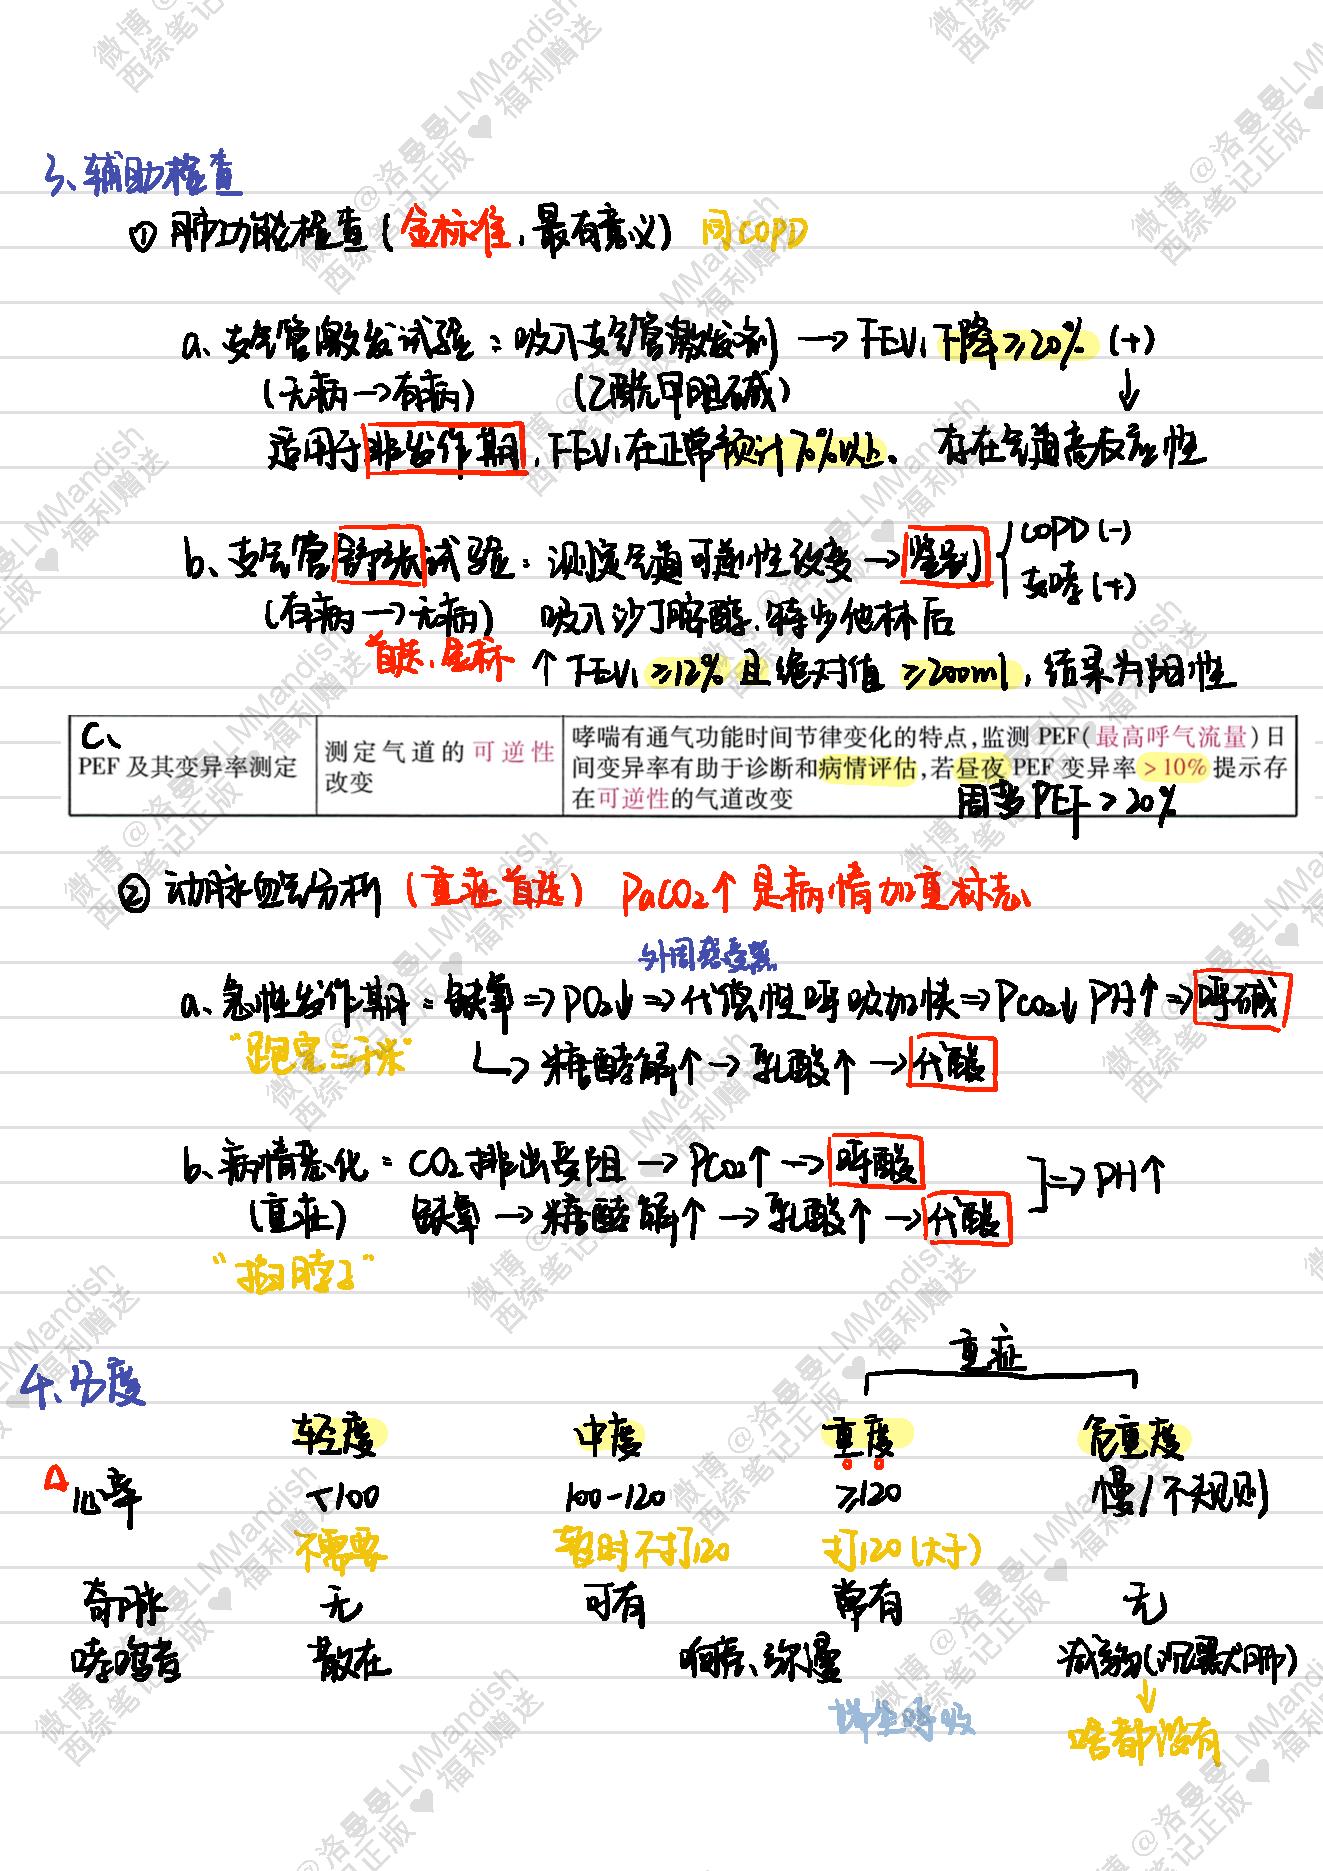 3、辅助检查
① 肺功能检查(金标准,最有意义) 同COPD
a、支气管激发试验:吸入支气管激发剂 → FEV₁下降≥20% (+)
(无病→有病) (乙酰甲胆碱) ↓
适用于非发作期,FEV₁在正常预计70%以上、 存在气道高反应性
b、支气管舒张试验:测定气道可逆性改变→鉴别 { COPD (-)
支哮 (+)
(有病→无病) 吸入沙丁胺醇、特步他林后
首选、金标 ↑FEV₁≥12% 且绝对值≥200ml,结果为阳性
C、
PEF 及其变异率测定
测定气道的可逆性
改变
哮喘有通气功能时间节律变化的特点,监测 PEF(最高呼气流量)日
间变异率有助于诊断和病情评估,若昼夜 PEF 变异率>10%提示存
在可逆性的气道改变
周 PEF>20%
② 动脉血气分析(重症首选) PaCO₂↑是病情加重标志、
外周感受器
a、急性发作期:缺氧⇒PO₂↓⇒代偿性呼吸加快⇒PCO₂↓ PH↑⇒呼碱
“跑完三千米” ↳糖酵解↑→乳酸↑→代酸
b、病情恶化:CO₂排出受阻→PCO₂↑→呼酸 ]⇒PH↑
(重症) 缺氧→糖酵解↑→乳酸↑→代酸
“掐脖子”
4、分度
重症
轻度 中度 重度 危重度
△心率 <100 100-120 ≥120 慢/不规则
不需要 暂时不打120 打120(大于)
奇脉 无 可有 常有 无
哮鸣音 散在 响亮、弥漫 减弱(沉默肺)
端坐呼吸 ↓
啥都没有
微博@洛曼曼LMMandish
西综笔记正版♥福利赠送